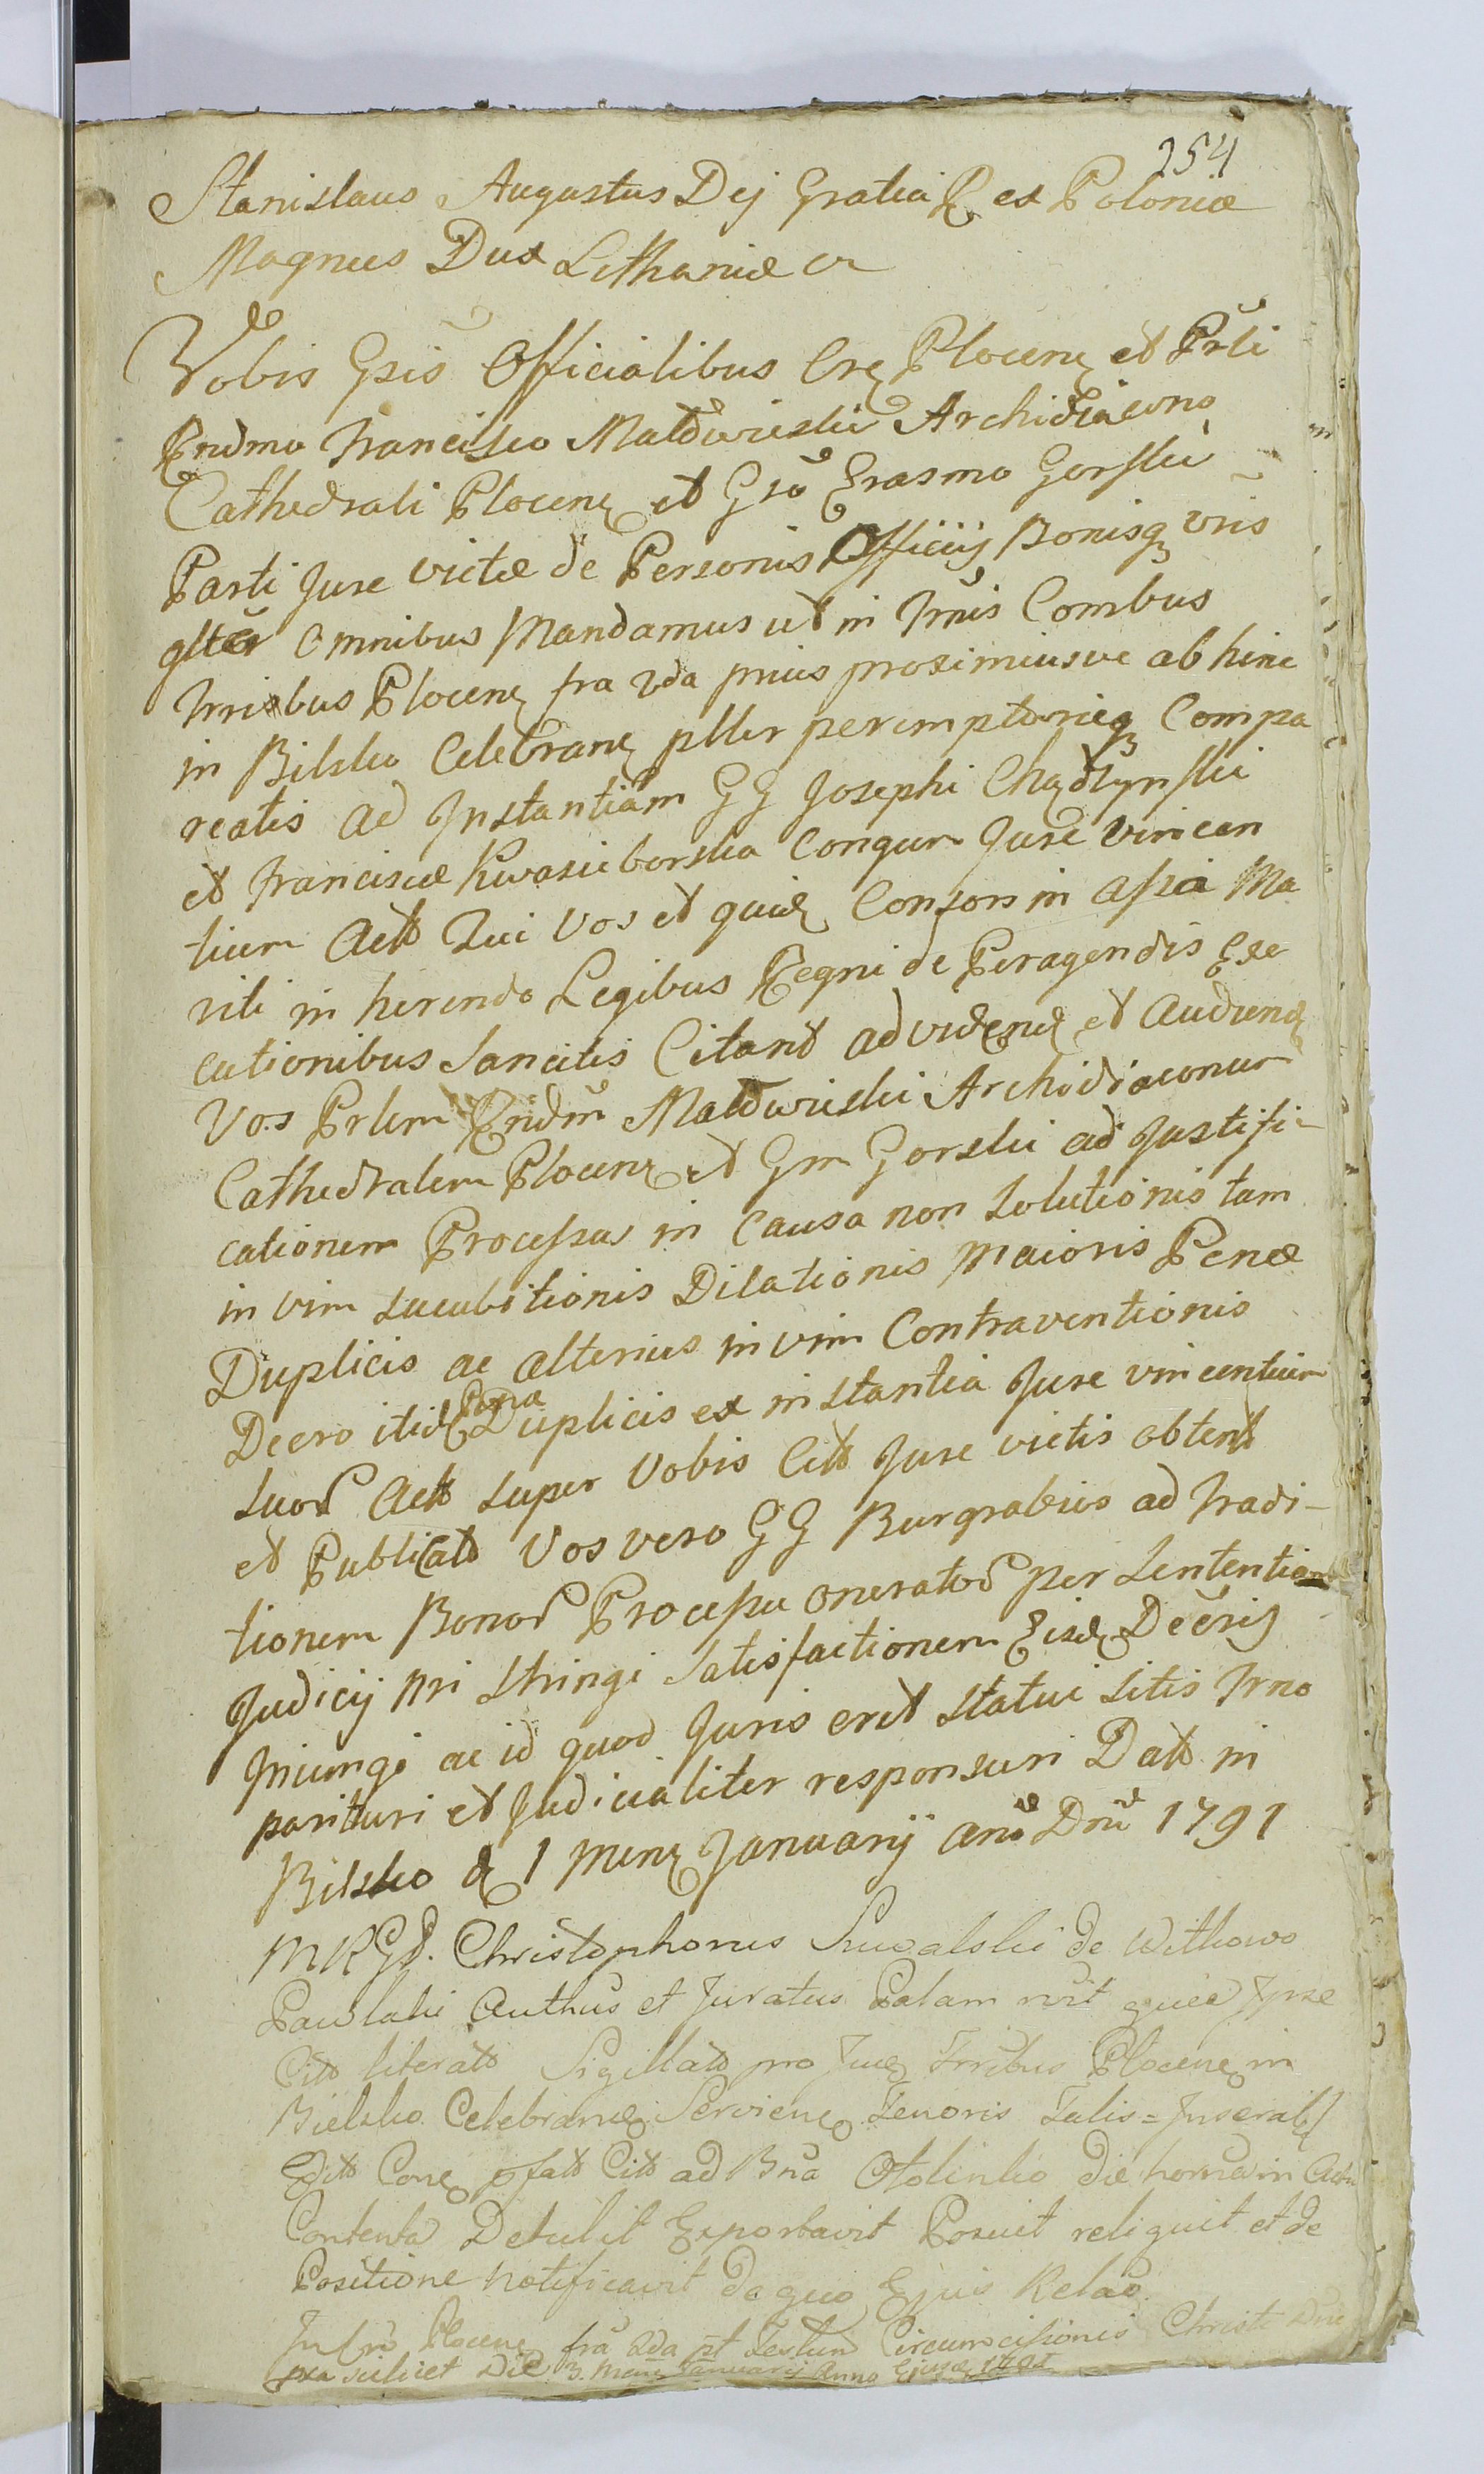 254
Stanislaus Augustus Dej Gratia Rex Poloniæ
Magnus Dux Lithaniæ
Vobis Gsis Officialibus Cre Plocen et Prli
Rndmo Francisco Matdwieski Archidiacono
Cathedrali Plocen et Gso Erasmo Gorski
Parti Jure victæ de Personis Officijs Bonisq vris
glter Omnibus Mandamus ut in Trmis Combus
Trrisbus Plocen fra 2da prius proximiusve ab hinc
in Bilsko Celebran pller peremptorieq Compa
reatis ad Instantiam GG Josephi Chądzynski
et Franciscæ Kwasieborska Congum Jure Vincen
tium Actt Qui Vos et quid Consors in assia Ma
riti in herendo Legibus Regni de Peragendis Exe
cutionibus Sancitis Citant ad viden et Audiend
Vos Prlem Rndm Matdwieski Archidiaconum
Cathedralem Plocen et Gm Gorski ad Justifi-
cationem Processus in Causa non Solutionis tam
in vim Sucubitionis Dilationis Maioris Penæ
Duplicis ac alterius in vim Contraventionis
Decro itid Pena Duplicis ex instantia Jure vincentium
Suor Actt Super Vobis Citt Jure victis obtent
et Publicatt Vos vero GG Burgrabios ad Tradi-
tionem Bonor Processu onerator per Sententiam
Judicij nri Stringi Satisfactionem Eisd Decris
Injungi ac id quod Juris erit Statui Sitis Trno
parituri et Judicialiter responsuri Datt in
Bilsko d 1 Men Januarij ano Dni 1791
MRGD. Christophorus Suwalski de Witkowo
Pawlaki Authus et Juratus Palam rvit quia Ipse
Citt literatt Sigillatt pro Jud Trribus Plocen in
Bielsko Celebrand Servien Tenoris Talis = Inserat
Editt Con pfatt Citt ad Bna Otolinko die hornâ in Actu
Contenta Detulit Exportavit Posuit reliquit et de
Positione notificavit de quo Ejus Relao
In Cro Plocen fra 2da pt Festum Circumcisionis Christi Dni
pxa scilicet Die 3. Men Januarij Anno Ejusd 1791